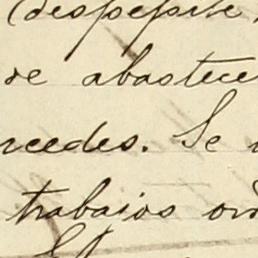 (despepite,
de abastece
rcedes. Se
trabajos or